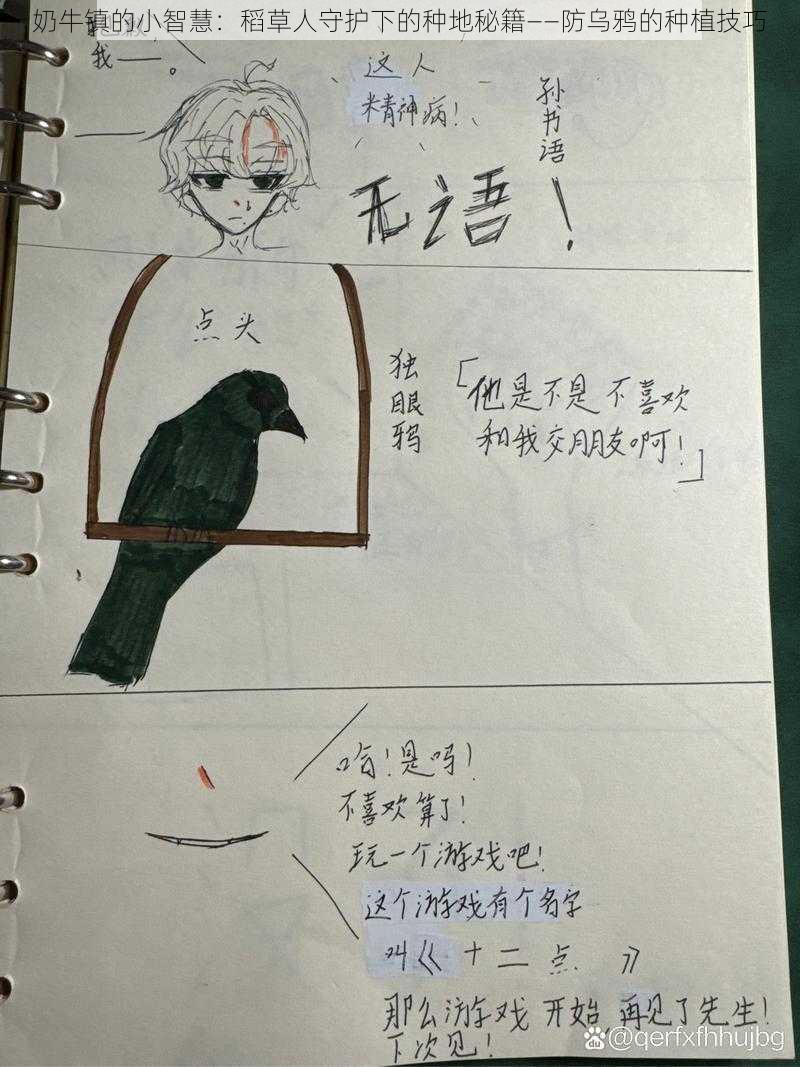 奶牛镇的小智慧：稻草人守护下的种地秘籍——防乌鸦的种植技巧
我——。
这人
精神病！
孙书语
无语！
点头
独眼鸦
「他是不是不喜欢
和我交朋友啊！」
哈！是吗！
不喜欢算了！
玩一个游戏吧！
这个游戏有个名字
叫《十二点》
那么游戏开始，再见了先生！
下次见！
Baidu @qerfxfhhujbg